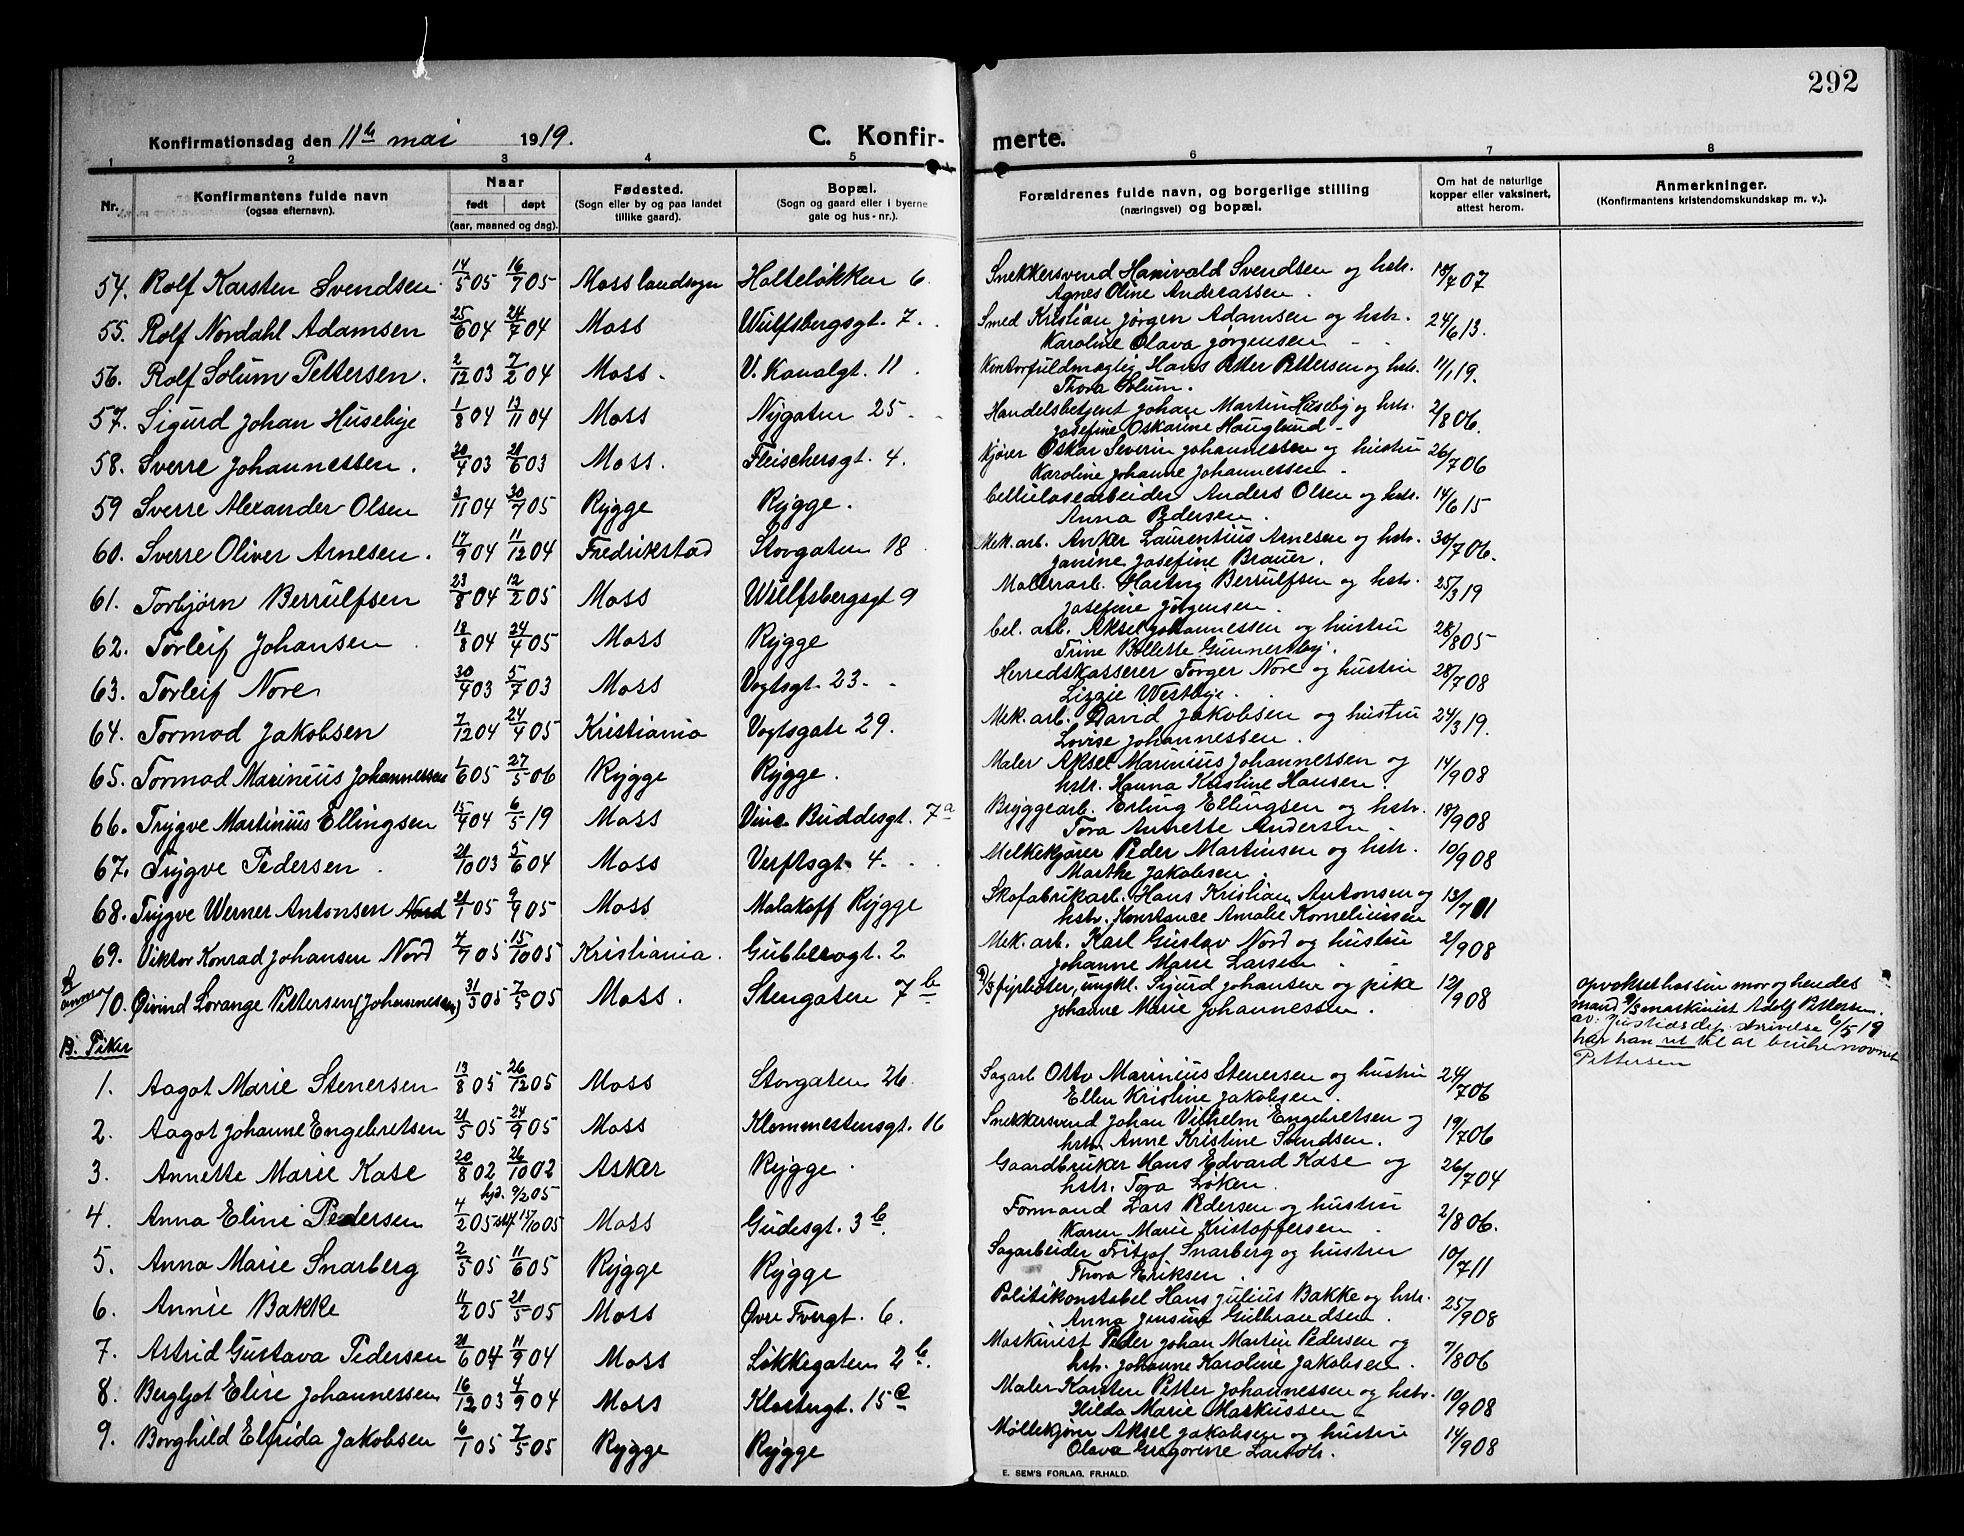 292
Konfirmationsdag den 11te mai 1919. C. Konfirmerte.
1 2 3 4 5 6 7 8
Nr. Konfirmantens fulde navn (ogsaa efternavn). Naar født døpt (aar, maaned og dag). Fødested. (Sogn eller by og paa landet tillike gaard). Bopæl. (Sogn og gaard eller i byerne gate og hus-nr.). Forældrenes fulde navn, og borgerlige stilling (næringsvei) og bopæl. Om hat de naturlige kopper eller vaksinert, attest herom. Anmerkninger. (Konfirmantens kristendomskundskap m. v.).
54. Rolf Karsten Svendsen 14/5 05 16/7 05 Moss landsogn Holteløkken 6. Snekkersvend Harivald Svendsen og hstr. 18/7 07
Agnes Oline Andreassen.
55. Rolf Nordahl Adamsen 25/6 04 24/7 04 Moss Wulfsbergsgt. 7. Smed Kristian Jørgen Adamsen og hstr. 24/6 13.
Karoline Olava Jørgensen
56. Rolf Solum Pettersen. 2/12 03 7/2 04 Moss. V. Kanalgt. 11. Kontorfuldmægtig Hans Petter Pettersen og hstr. 11/1 19.
Thora Solum.
57. Sigurd Johan Husebye 1/8 04 13/11 04 Moss Nygaten 25. Handelsbetjent Johan Martin Huseby og hstr. 2/8 06.
Josefine Oskarine Hauglund
58. Sverre Johannessen. 20/4 03 21/6 03 Moss. Fleischersgt. 4. Kjører Oskar Severin Johannessen og hustru 26/7 06
Karoline Johanne Johannessen.
59 Sverre Alexander Olsen 3/11 04 30/7 05 Rygge Rygge. Cellulosearbeider Anders Olsen og hstr. 14/6 15
Anna Pedersen.
60. Sverre Oliver Arnesen. 17/9 04 11/12 04 Fredrikstad Storgaten 18. Mek. arb. Anker Laurentius Arnesen og hstr. 30/7 06.
Janine Josefine Brauer.
61. Torbjørn Berrulfsen 23/8 04 12/2 05 Moss Wulfsbergsgt 9 Møllerarb. Hartvig Berrulfsen og hstr. 25/3 19
Josefine Jørgensen.
62. Torleif Johansen 18/8 04 24/4 05 Moss Rygge Cel. arb. Aksel Johannessen og hustru 28/8 05
Trine Bollette Gunnersby.
63. Torleif Nore 30/4 03 5/7 03 Moss Vogtsgt. 23. Herredskasserer Torger Nore og hustru 28/7 08
Lizzie Westbye.
64. Tormod Jakobsen 7/12 04 24/4 05 Kristiania Vogtsgate 29. Mek. arb. David Jakobsen og hustru 24/3 19.
Lovise Johannessen.
65. Tormod Marinius Johannessen 1/6 05 27/5 06 Rygge Rygge. Maler Aksel Marinius Johannessen og 14/9 08
hstr. Hanna Kristine Hansen.
66. Trygve Martinius Ellingsen 15/4 04 6/5 19 Moss Vinc. Buddesgt. 7a Bryggearb. Erling Ellingsen og hstr. 18/9 08
Tora Annette Andersen.
67. Trygve Pedersen. 21/10 03 5/6 04 Moss Verftsgt. 4. Melkekjører Peder Martinsen og hstr. 10/9 08
Marthe Jakobsen.
68. Trygve Werner Antonsen Nord 21/1 05 9/4 05 Moss Malakoff Rygge Skofabrikarb. Hans Kristian Antonsen og 13/7 11
hstr. Konstance Amalie Korneliussen
69. Viktor Konrad Johansen Nord 4/7 05 15/10 05 Kristiania. Gubberogt. 2 Mek. arb. Karl Gustav Nord og hustru 2/9 08
Johanne Marie Larsen
anm. 70. Øivind Lorange Pettersen (Johannessen) 31/3 05 7/5 05 Moss. Stengaten 7b D/S fyrbøter, ungkl. Sigurd Johansen og pike 12/9 08 opvokset hos sin mor og hendes
Johanne Marie Johannessen. mand D/S maskinist Adolf Pettersen.
av Justisdep. skrivelse 6/5 19
har han ret til at bruke navnet
Pettersen
B. Piker
1. Aagot Marie Stenersen 13/8 05 26/12 05 Moss Storgaten 26. Sagarb Otto Marinius Stenersen og hustru 24/7 06
Ellen Kristine Jakobsen.
2. Aagot Johanne Engebretsen 21/5 05 24/9 05 Moss Klommestensgt. 16 Snekkersvend Johan Vilhelm Engebretsen og 19/7 06
hstr. Anne Kristine Svendsen.
3. Annette Marie Kase 20/8 02 26/10 02 Asker Rygge. Gaardbruker Hans Edvard Kase og 26/7 04
hstr. Tora Løken.
4. Anna Eline Pedersen 4/2 05 hjd. 9/2 05 stf 15/10 05 Moss Gudesgt. 3b. Formand Lars Pedersen og hustru 2/8 06.
Karen Marie Kristoffersen.
5. Anna Marie Snarberg 2/5 05 11/6 05 Rygge Rygge Sagarbeider Fritjof Snarberg og hustru 10/7 11
Thora Eriksen.
6. Annie Bakke 11/2 05 21/5 05 Moss Øvre Tvergt. 6. Politikonstabel Hans Julius Bakke og hstr. 25/9 08
Anna Jensine Gulbrandsen.
7. Astrid Gustava Pedersen 21/6 04 11/9 04 Moss Løkkegaten 2b. Maskinist Peder Johan Martin Pedersen og 7/8 06
hstr. Johanne Karoline Jakobsen.
8. Bergljot Elise Johannessen 16/12 03 4/9 04 Moss Klostergt. 15c Maler Karsten Petter Johannessen og hstr. 10/9 08
Hilda Marie Markussen
9. Borghild Elfrida Jakobsen 6/1 05 7/5 05 Rygge Rygge Møllekjører Aksel Jakobsen og hustru 14/9 08
Olava Gregorine
E. SEM'S FORLAG, FR.HALD.